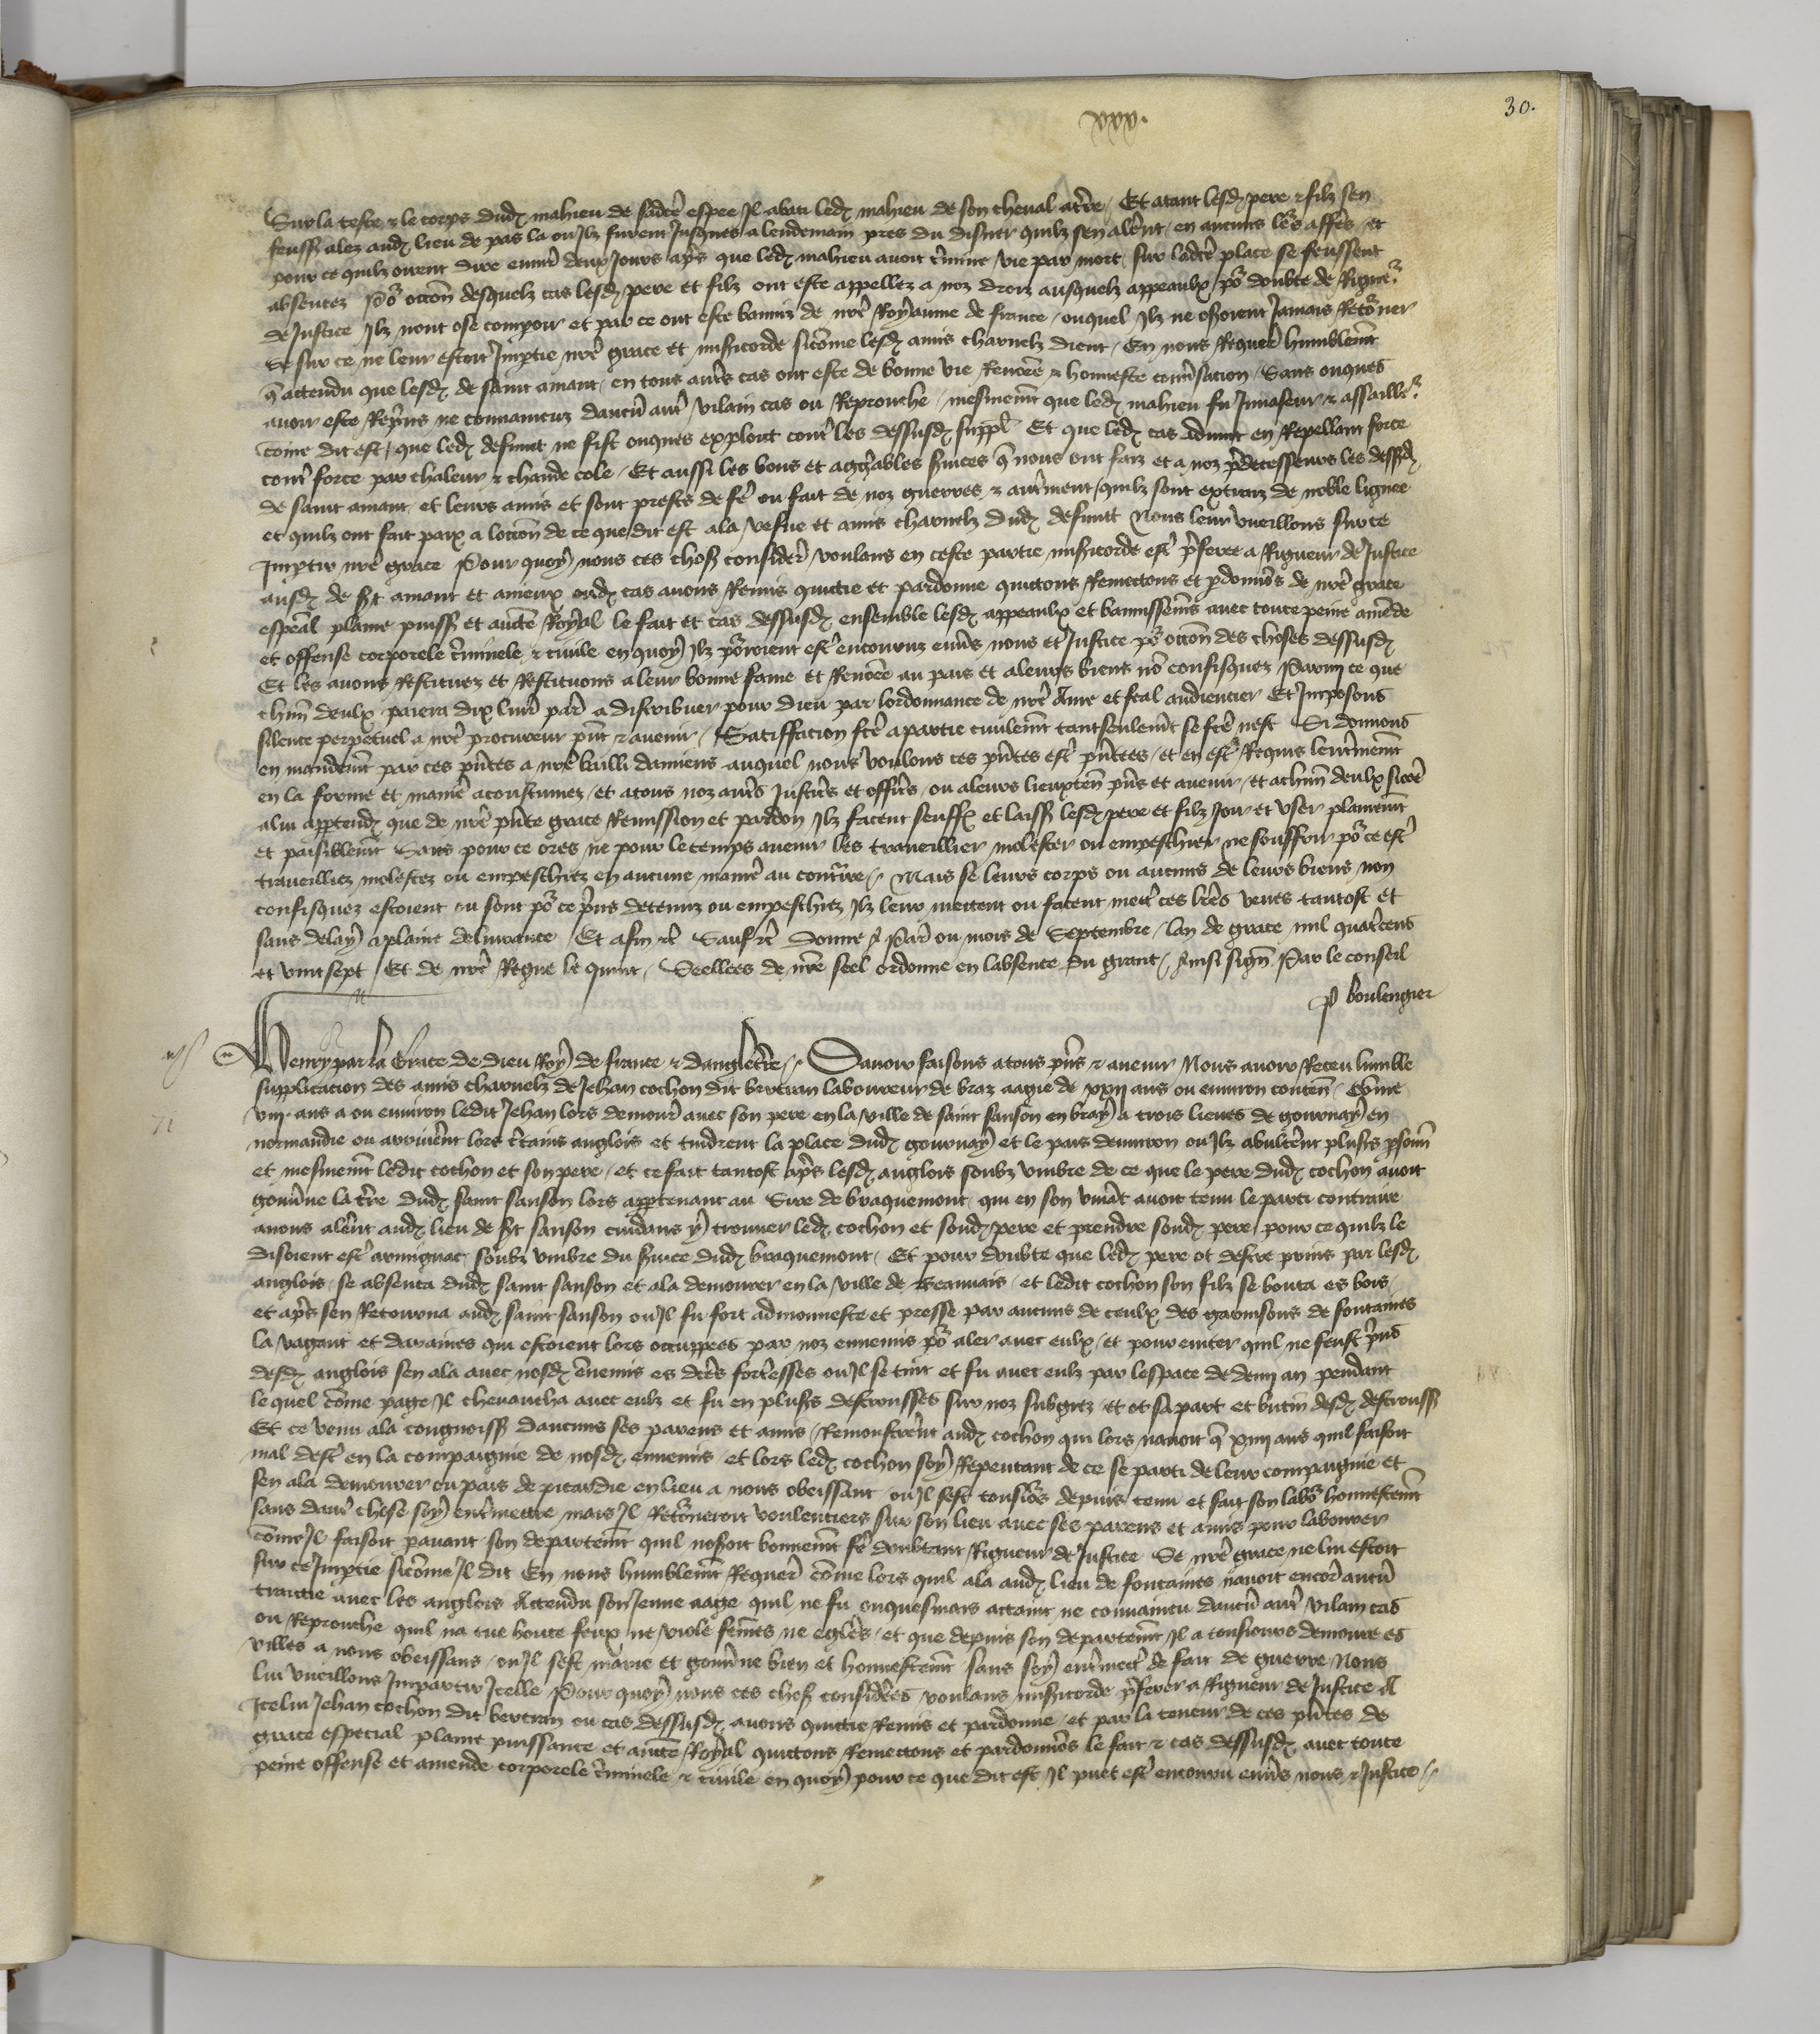 xxx.
30.
Sur la teste & le corps dud mahieu de sadcte espee Il abati led mahieu de son cheval a tre / Et atant lesd pere & filz sen
feuss alez aud lieu de pas la ou Ilz furent Jusques a lendemain pres du disner quilz sen alerent en aucuns lrs affes / et
pour ce quilz oirent dire environ deux Jours aps que led mahieu avoit tmine vie par mort sur ladcte place se feussent
absentez Pour occon desquelz cas lesd pere et filz ont este appellez a noz droiz ausquelz appeaulx por doubte de Rigueur
de Justice Ilz nont ose compoir et par ce ont este banniz de nre Royaume de france / ouquel Ilz ne oseroient Jamais Retorner
Se sur ce ne leur estoit Imptie nre grace et misicorde sicome lesd amis charnelz dient / En nous Requert humblemt
q attendu que lesd de saint amant / en tous autres cas ont este de bonne vie Renomee & honneste conversation / Sans onques
avoir este Repris ne convaincuz daucun autre vilain cas ou Reprouche / mesmemt que led mahieu fu Invaseur & assailleur
come dit est / que led defunct ne fist onques exploit contre les dessusd suppl Et que led cas advint en Repellant force
contre force par chaleur & chaude cole / Et aussi les bons et aggreables services q nous ont faiz et a noz predecesseurs les dessusd
de saint amant et leurs amis et sont prests de fe ou fait de noz guerres & autrement / quilz sont extraiz de noble lignee
et quilz ont fait paix a loccon de ce que dit est a la vesve et amis charnelz dud defunct Nous leur vueillons sur ce
Imptir nre grace Pour quoy nous ces choses consider / voulans en ceste partie misicorde estre preferee a Rigueur de Justice
ausd de St amant et ameux oud cas avons Remis quictie et pardonne quictons Remectons et pdonnons de nre grace
espeal plaine puiss et aucte Royal le fait et cas dessusd ensemble lesd appeaulx et bannissemens avec toute peine amende
et offense corporele criminele & civile en quoy Ilz porroient estre encouruz envers nous et Justice por occon des choses dessusd
Et les avons Restituez et Restituons a leur bonne fame et Renomee au pais et a leurs biens no confisquez Parmi ce que
chun deulx paiera dix livres par a distribuer pour dieu par lordonnance de nre Ame et feal audiencier Et Imposons
silence perpetuel a nre procureur pnt & avenir / Satisffacion fcte a partie civilemt tantseulemt se fcte nest Si donnons
en mandemt par ces pntes a nre bailli damiens auquel nous voulons ces pntes estre pntees / et en estre Requis leurmemt
en la forme et maniere acoustumez / et a tous noz autres Justiciers et officiers ou a leurs lieuxten pns et avenir / et a chun deulx sicome
a lui apptendra que de nre pnte grace Remission et pardon Ilz facent seuffr et laiss lesd pere et filz Joir et User plainemt
et paisiblemt Sans pour ce ores ne pour le temps avenir les traveillier molester ou empeschier ne souffrir por ce estre
traveilliez molestez ou empeschiez en aucune maniere au contraire // Mais se leurs corps ou aucuns de leurs biens non
confisquez estoient ou sont por ce prins detenuz ou empeschiez Ilz leur mectent ou facent mectre ces lres veues tantost et
sans delay a plaine delivrance / Et afin etc Sauf etc Donne a Paris ou mois de Septembre / lan de grace mil quatrecens
et vint sept / Et de nre Regne le quint / Seellees de nre seel ordonne en labsence du grant / Ainsi sign Par le conseil
P boulengier
Henry par la Grace de dieu Roy de france & dangleterre // Savoir faisons a tous pns & avenir Nous avoir Receu lumble
supplicacion des amis charnelz de Jehan cochon dit bertran laboureur de braz aagie de xxii ans ou environ conten / Come
viii ans a ou environ ledit Jehan lors demour avec son pere en la ville de saint sanson en bray a trois lieues de gournay en
normandie ou arriverent lors certains anglois et tindrent la place dud gournay et le pais denviron ou Ilz abulterent plusrs psonn
et mesmemt ledit cochon et son pere / et ce fait tantost aps lesd anglois soubz umbre de ce que le pere dud cochon avoit
gouverne la tre dud saint sanson lors apptenant au Sire de braquemont qui en son vivat avoit tenu le parti contraire
a nous alerent aud lieu de St sanson cuidans y trouver led cochon et sond pere et prendre sond pere pour ce quilz le
disoient estre armignac soubz umbre du service dud braquemont / Et pour doubte que led pere ot destre prins par lesd
anglois se absenta dud saint sanson et ala demourer en la ville de Beauvais / et ledit cochon son filz se bouta es bois
et aps sen Retourna aud saint sanson ou Il fu fort admonneste et presse par aucuns de ceulx des garnisons de fontaines
la vagant et daraines qui estoient lors occuppees par noz ennemis por aler avec eulx / et pour eviter quil ne feust pns
desd anglois sen ala avec nosd ennemis es dctes forteresses ou Il se tint et fu avec eulz par lespace de demi an pendant
le quel come page Il chevaucha avec eulz et fu en plusrs destrousses sur noz subgez et ot sa part et butin desd destrouss
Et ce venu a la congnoiss daucuns ses parens et amis / Remonstrerent aud cochon qui lors navoit q xiiii ans quil faisoit
mal destre en la compaignie de nosd ennemis / et lors led cochon soy Repentant de ce se parti de leur compaignie et
sen ala demourer ou pais de picardie en lieu a nous obeissant ou Il sest tousiors depuis tenu et fait son labor honnestemt
sans dautre chose soy entremettre mais Il Retorneroit voulentiers sur son lieu avec ses parens et amis pour labourer
come Il faisoit pavant son departemt quil noseroit bonnemt fe doubtant Rigueur de Justice Se nre grace ne lui estoit
sur ce Imptie sicome Il dit En nous humblemt Requer come lors quil ala aud lieu de fontaines navoit encor aucun
traictie avec les anglois Attendu son Jeune aage quil ne fu onquesmais attaint ne convaincu daucun autre vilain cas
ou Reprouche quil na tue boute feux ne viole femmes ne eglises / et que depuis son departemt Il a tousiours demoure es
villes a nous obeissans / ou Il sest marie et gouverne bien et honnestemt sans soy entremectre de fait de guerre Nous
lui vueillons Impartir Icelle Pour quoy nous ces choses considerees voulans misicorde preferer a Rigueur de Justice A
Icelui Jehan cochon dit bertran ou cas dessusd avons quictie Remis et pardonne / et par la teneur de ces pntes de
grace especial plaine puissance et aucte Royal quictons Remectons et pardonnons le fait & cas dessusd avec toute
peine offense et amende corporele criminele & civile en quoy pour ce que dit est Il puet estre encouru envers nous & Justice //